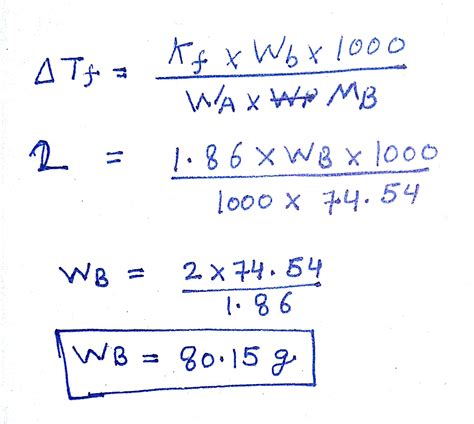 ΔTf = Kf x Wb x 1000 / WA x MB
2 = 1.86 x WB x 1000 / 1000 x 74.54
WB = 2 x 74.54 / 1.86
WB = 80.15 g